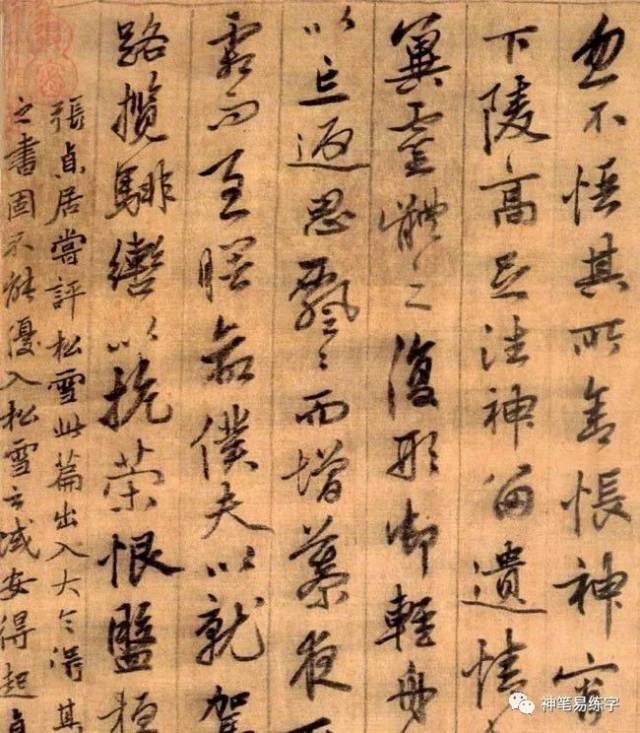 忽不悟其所舍悵神宵
下陵高足往神留遺情
冀靈體之復形御輕舟
以忘返思〻而增慕夜
霜而至曙命僕夫以就駕
路攬騑轡以抗策悵盤桓
張貞居嘗評松雪此篇出入大令得其
之書固不能優入松雪之域安得起貞
神笔易练字